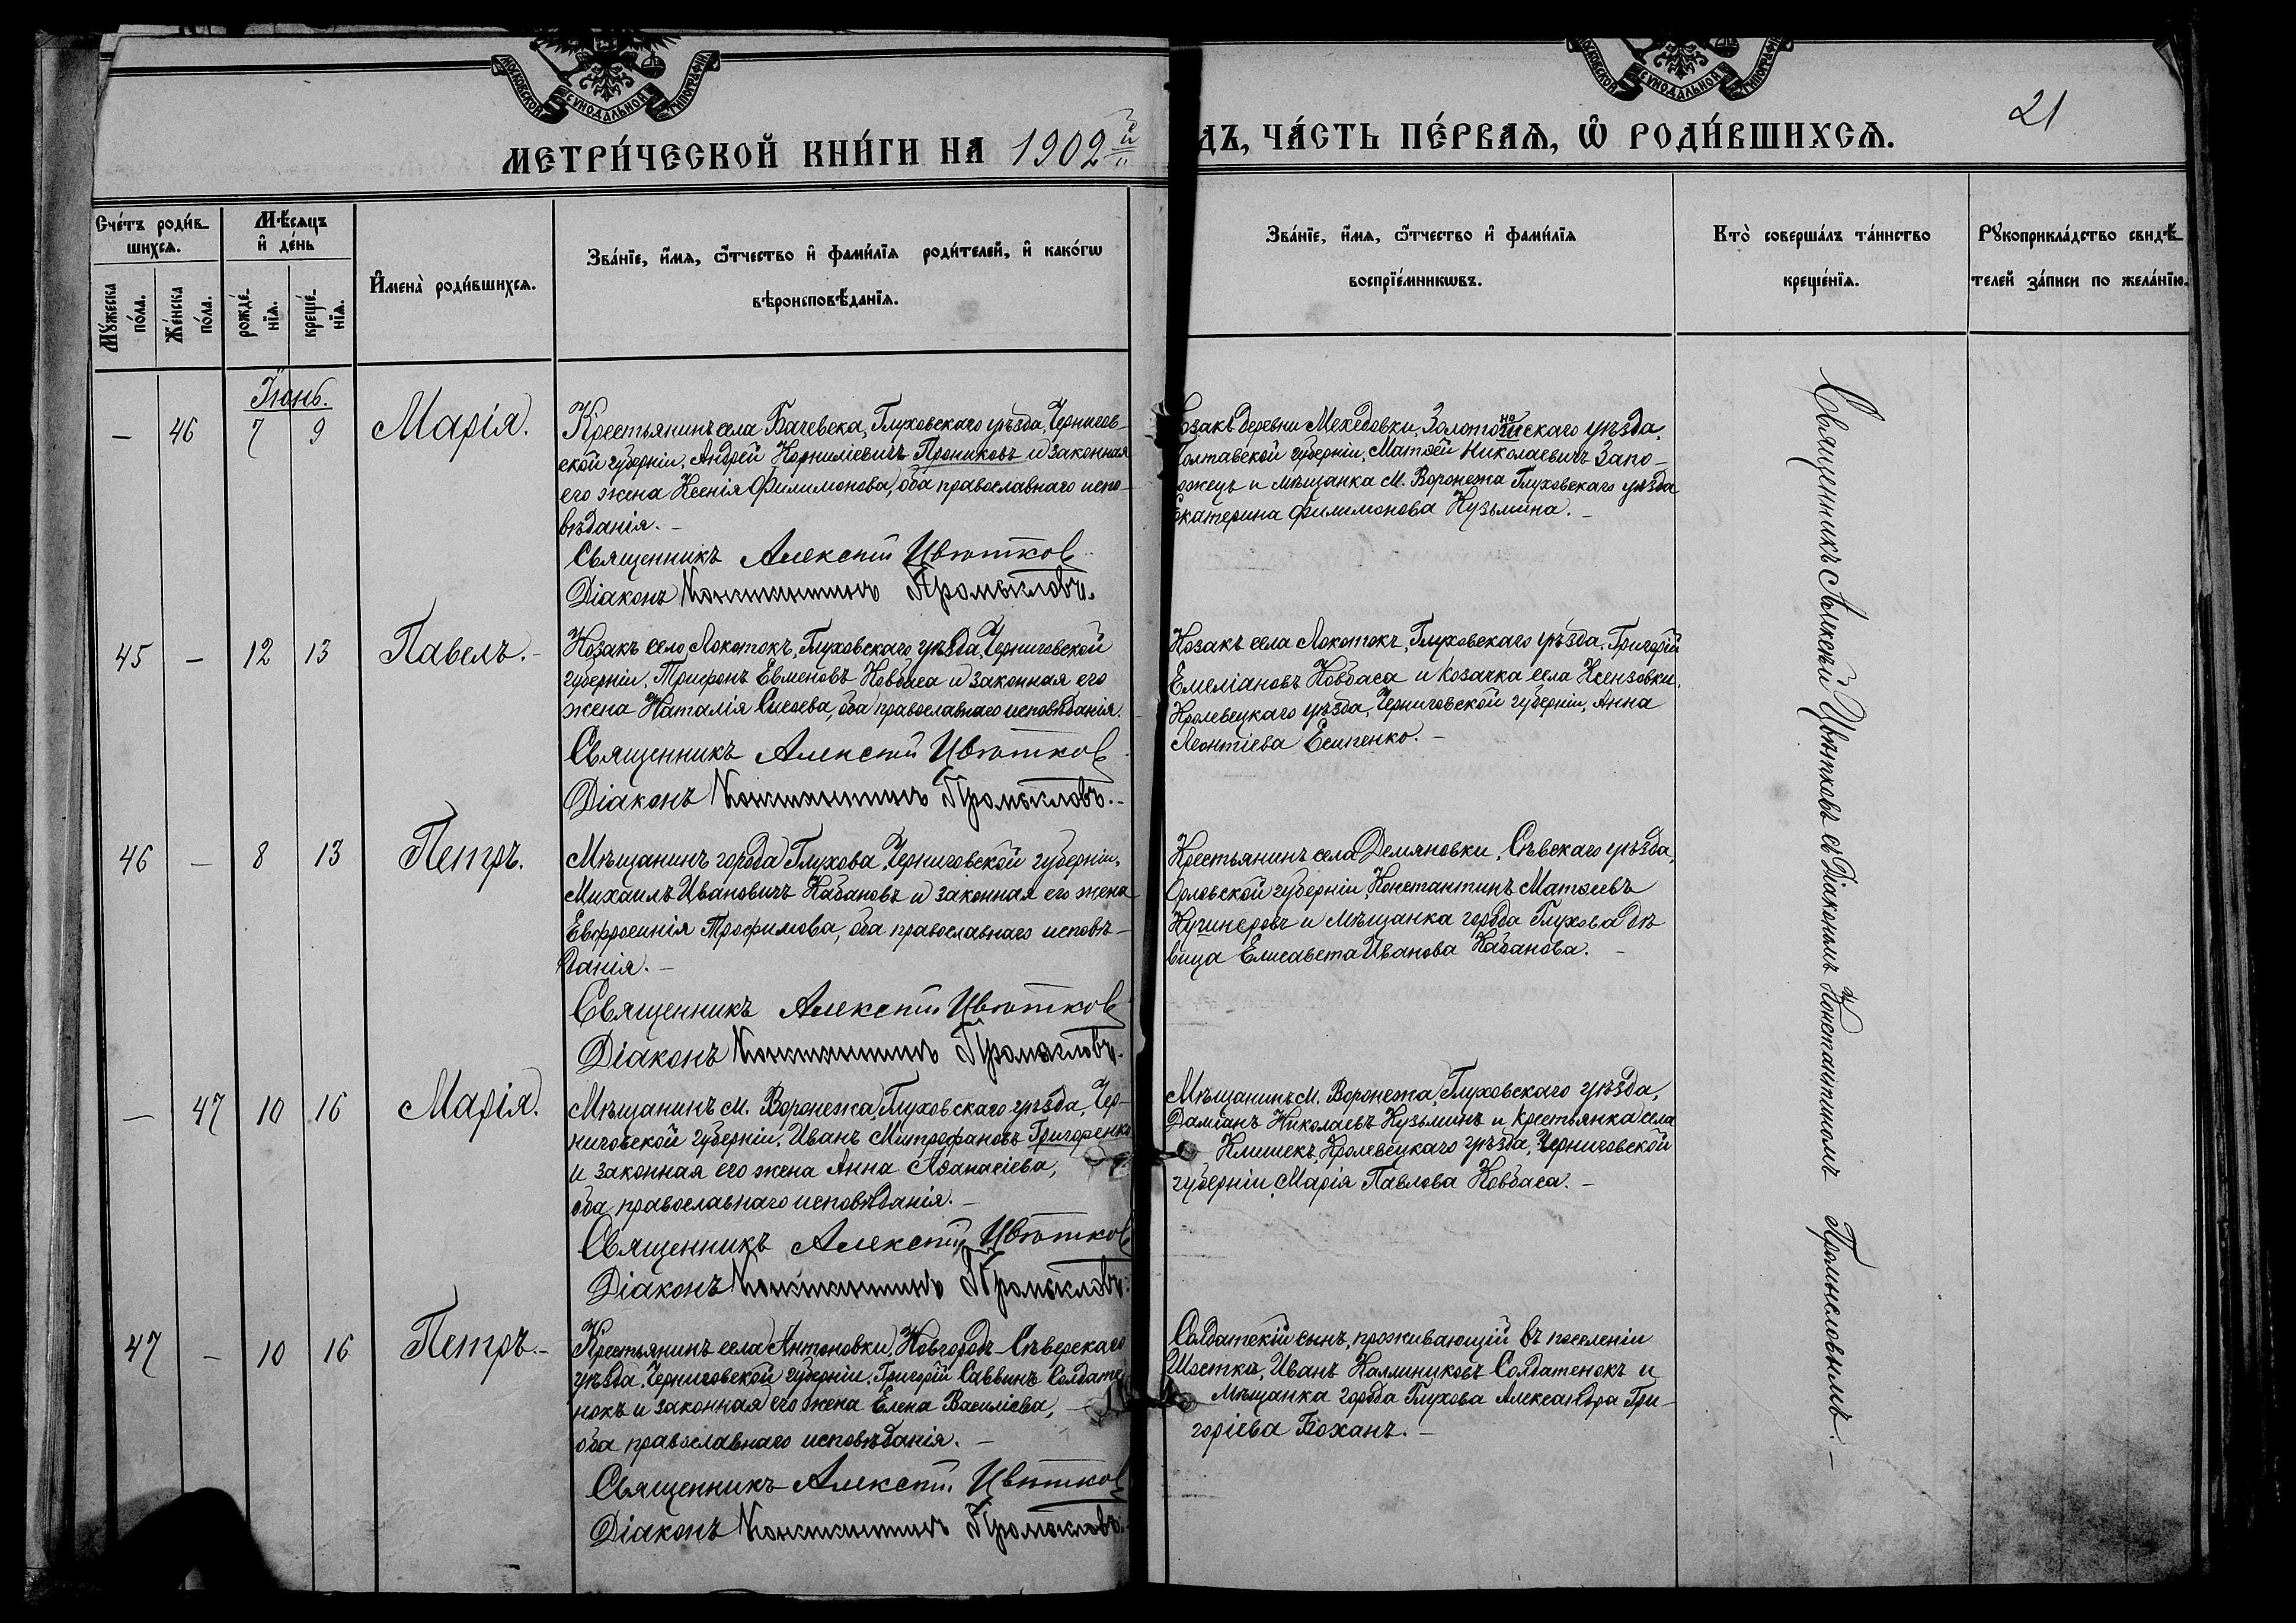 МОСКОВСКОЙ СѴНОДАЛЬНОЙ ТИПОГРАФІИ
МОСКОВСКОЙ СѴНОДАЛЬНОЙ ТИПОГРАФІИ
21
МЕТРИ́ЧЕСКОЙ КНИ́ГИ НА 1902й
ДЪ, ЧА́СТЬ ПЕ́РВАѦ, Ѡ҆ РОДИ́ВШИХСѦ.
Сче́тъ роди́в-
шихсѧ.
Мѣ́сяцъ
и҆ де́нь
Мꙋ́жеска
по́ла.
Же́нска
по́ла.
рожде́-
нїѧ.
креще́-
нїѧ.
И҆мена̀ роди́вшихсѧ.
Зва́нїе, и҆́мѧ, ѻ҆́тчество и҆ фами́лїѧ роди́телей, и҆ како́гѡ
вѣроисповѣ́данїѧ.
Зва́нїе, и҆́мѧ, ѻ҆́тчество и҆ фами́лїѧ
воспрїе́мникѡвъ.
Кто̀ соверша́лъ та́инство
креще́нїѧ.
Рꙋкоприкла́дство свидѣ́-
телей за́писи по жела́нїю.
Іюнь.
— 46 7 9 Марія.
Крестьянинъ села Бачевска, Глуховскаго уѣзда, Чернигов-
ской губерніи, Андрей Корниліевичъ Прониковъ и законная
его жена Ксенія Филимонова, оба православнаго испо-
вѣданія. —
Священникъ Алексѣй Цвѣтков
Діаконъ Константинъ Промысловъ.
озакъ деревни Мехедовки, Золотоношскаго уѣзда,
Полтавской губерніи, Матѳей Николаевичъ Запо-
рожецъ и мѣщанка м. Воронежа Глуховскаго уѣзда
Екатерина Филимонова Кузьмина. —
45 — 12 13 Павелъ. —
Козакъ село Локотокъ, Глуховскаго уѣзда, Черниговской
губерніи, Трифонъ Евменовъ Ковбаса и законная его
жена Наталія Сисоева, оба православнаго исповѣданія.
Священникъ Алексѣй Цвѣтков
Діаконъ Константинъ Промысловъ. —
Козакъ села Локотокъ, Глуховскаго уѣзда, Григорій
Емеліановъ Ковбаса и козачка села Ксензовки,
Кролевецкаго уѣзда, Черниговской губерніи, Анна
Леонтіева Есипенко. —
46 — 8 13 Петръ.
Мѣщанинъ города Глухова, Черниговской губерніи,
Михаилъ Ивановичъ Кабановъ и законная его жена
Евфросинія Трофимова, оба православнаго исповѣ-
данія. —
Священникъ Алексѣй Цвѣтков
Діаконъ Константинъ Промысловъ.
Крестьянинъ села Демяновки, Сѣвскаго уѣзда,
Орловской губерніи, Константинъ Матѳеевъ
Кушнеровъ и мѣщанка города Глухова дѣ
вица Елисавета Иванова Кабанова. —
— 47 10 16 Марія.
Мѣщанинъ м. Воронежа, Глуховскаго уѣзда, Чер-
ниговской губерніи, Иванъ Митрофановъ Григоренко
и законная его жена Анна Аѳанасіева,
оба православнаго исповѣданія. —
Священникъ Алексѣй Цвѣтков
Діаконъ Константинъ Промысловъ.
Мѣщанинъ м. Воронежа, Глуховскаго уѣзда,
Даміанъ Николаевъ Кузьминъ и крестьянка села
Клишекъ, Кролевецкаго уѣзда, Черниговской
губерніи, Марія Павлова Ковбаса. —
47 — 10 16 Петръ. —
Крестьянинъ села Антоновки, Новгородъ-Сѣверскаго
уѣзда, Черниговской губерніи, Григорій Саввинъ Солдате
нокъ и законная его жена Елена Василіева, —
оба православнаго исповѣданія. —
Священникъ Алексѣй Цвѣтков
Діаконъ Константинъ Промысловъ.
Солдатскій сынъ, проживающій въ поселеніи
Шостка, Иванъ Калиниковъ Солдатенокъ и
мѣщанка города Глухова Александра Гри-
горіева Боханъ. —
Священникъ Алексѣй Цвѣтковъ съ Діакономъ Константиномъ Промысловымъ. —